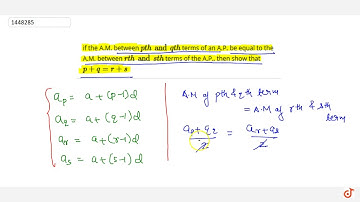 1448285
if the A.M. between pth and qth terms of an A.P. be equal to the
A.M. between rth and sth terms of the A.P., then show that
p + q = r + s
ap = a + (p-1)d
aq = a + (q-1)d
ar = a + (r-1)d
as = a + (s-1)d
A.M of pth & qth term
= A.M of rth & sth
term
ap + aq / 2 = ar + as / 2